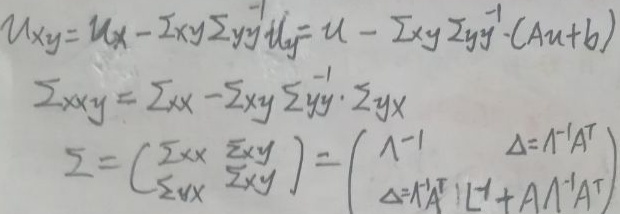 u_xy = u_x - Σxy Σyy⁻¹ u_y = u - Σxy Σyy⁻¹·(Au+b)
Σxxy = Σxx - Σxy Σyy⁻¹·Σyx
Σ = (Σxx Σxy) = (Λ⁻¹ Δ=Λ⁻¹Aᵀ)
(Σyx Σxy) (Δ=Λ⁻¹Aᵀ L⁻¹ + AΛ⁻¹Aᵀ)